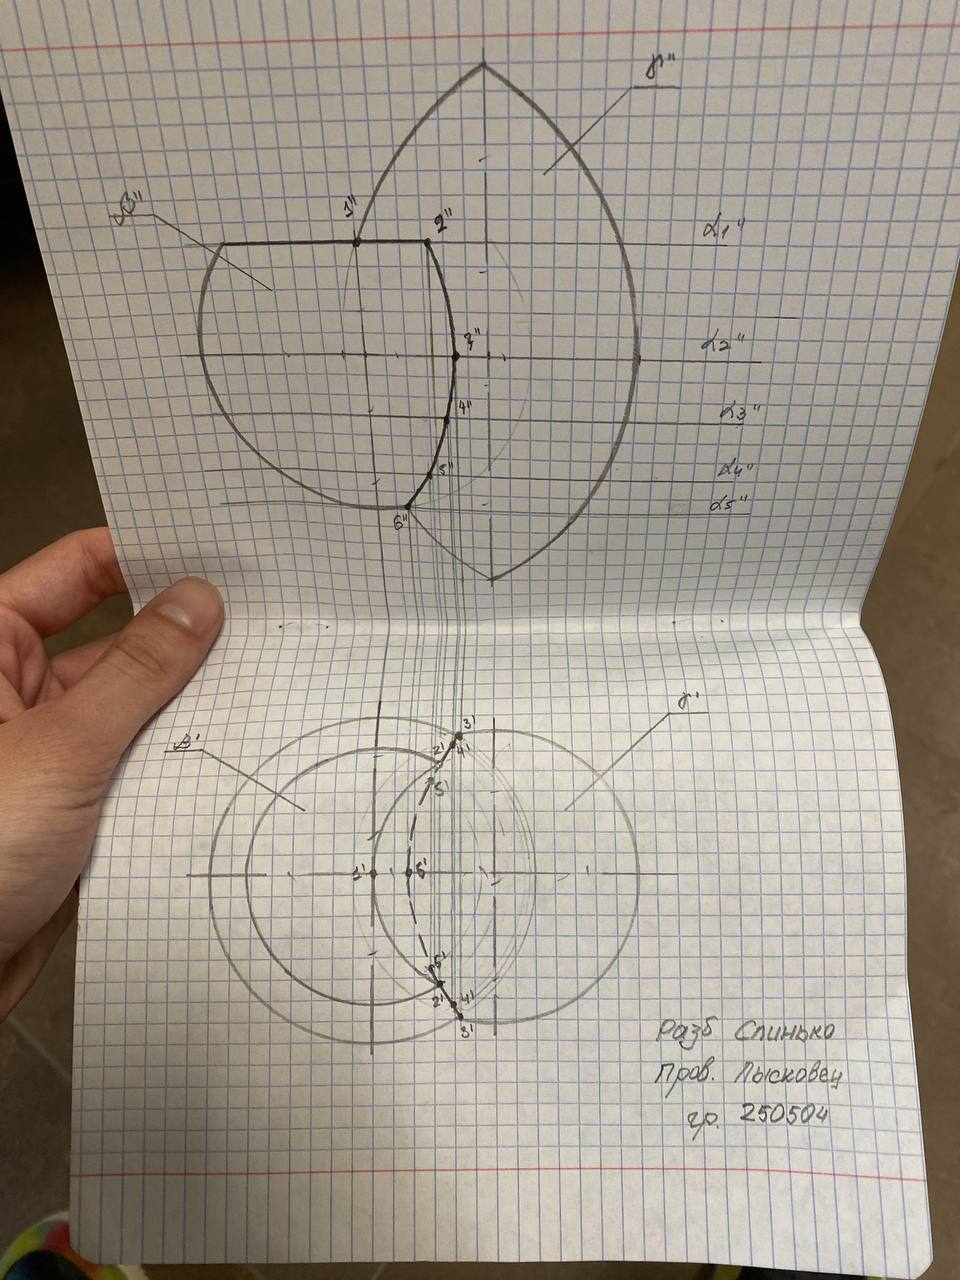 γ"
β"
1"
2"
α1"
3"
α2"
4"
α3"
5"
α4"
6"
α5"
β'
γ'
3'
2'
4'
5'
1'
6'
5'
2'
4'
3'
Разб Слинько
Пров. Лысковец
гр. 250504